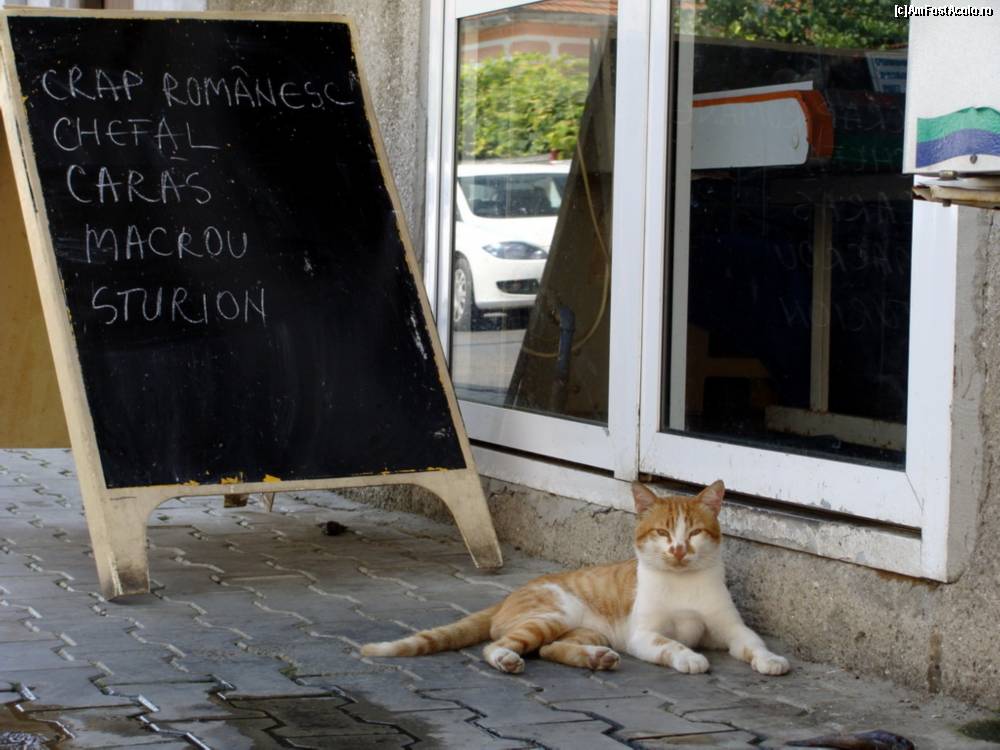 [c]AmFostAcolo.ro
CRAP ROMÂNESC
CHEFAL
CARAS
MACROU
STURION